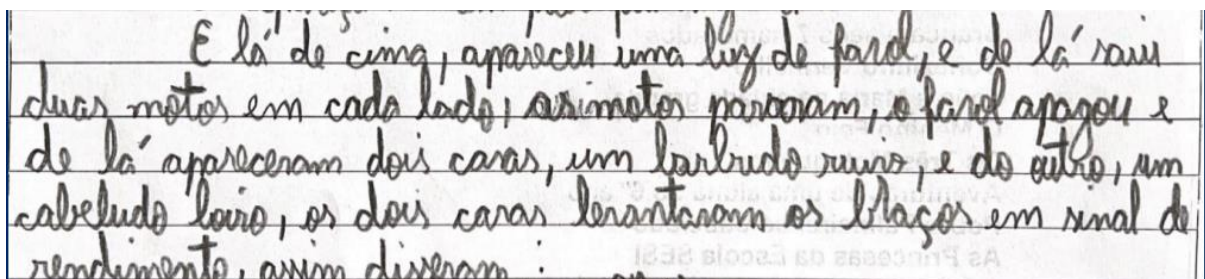 E lá de cima, apareceu uma luz de farol, e de lá saiu
duas motos em cada lado, as motos pararam, o farol apagou e
de lá apareceram dois caras, um barbudo ruivo, e do outro, um
cabeludo loiro, os dois caras levantaram os braços em sinal de
rendimento, assim disseram :
As Princesas da Escola SESI